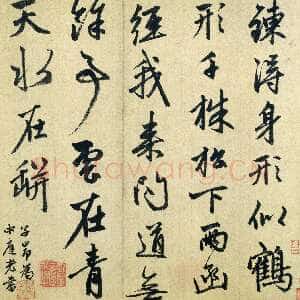 鍊得身形似鶴
形千株松下兩函
經我來問道無
餘事雲在青
天水在缾
子昂為
Shufawang.cn